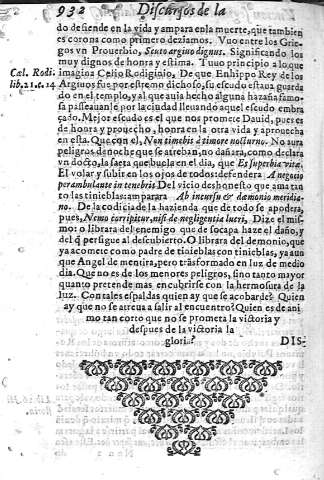 932 Discursos de la
do defiende en la vida y ampara en la muerte, que tambien
es corona como primero deziamos. Vuo entre los Grie-
gos vn Prouerbio, Scuto argiuo dignus. Significando los
muy dignos de honra y estima. Tuuo principio a lo que
imagina Celio Rodiginio, De que Enhippo Rey de los
Argiuos fue por estremo dichoso, su escudo estaua guarda
do en el templo, y al que auia hecho alguna hazaña famo-
sa passeauanle por la ciudad lleuando aquel escudo emb ra
çado. Mejor escudo es el que nos promete Dauid, pues es
de honra y prouecho, honra en la otra vida y aprouecha
en esta. Que con el, Non timebis à timore nocturno. No aura
peligros de noche que se atreban, no dañara, como declara
vn docto, la saeta que buela en el dia, que Es superbia vitæ.
El volar y subir en los ojos de todos: defendera A negocio
perambulante in tenebris Del vicio deshonesto que ama tan
to las tinieblas: amparara Ab incursu & dæmonio meridia-
no. De la codicia de la hazienda que de todo se apodera,
pues, Nemo corripitur, nisi de negligentia lucri, Dize el mis-
mo: o librara del enemigo que de socapa haze el daño, y
del q̃ persigue al descubierto. O librara del demonio, que
ya acomete como padre de tinieblas con tinieblas, ya aun
que Angel de mentira, pero trasformado en luz de medio
dia. Que no es de los menores peligros, sino tanto mayor
quanto pretende mas encubrirse con la hermosura de la
luz. Con tales espaldas quien ay que se acobarde? Quien
ay que no se atreua a salir al encuentro? Quien es de ani
mo tan corto que no se prometa la victoria y
despues de la victoria la
gloria? DIS-
Cæl. Rodi.
lib. 21. c. 14